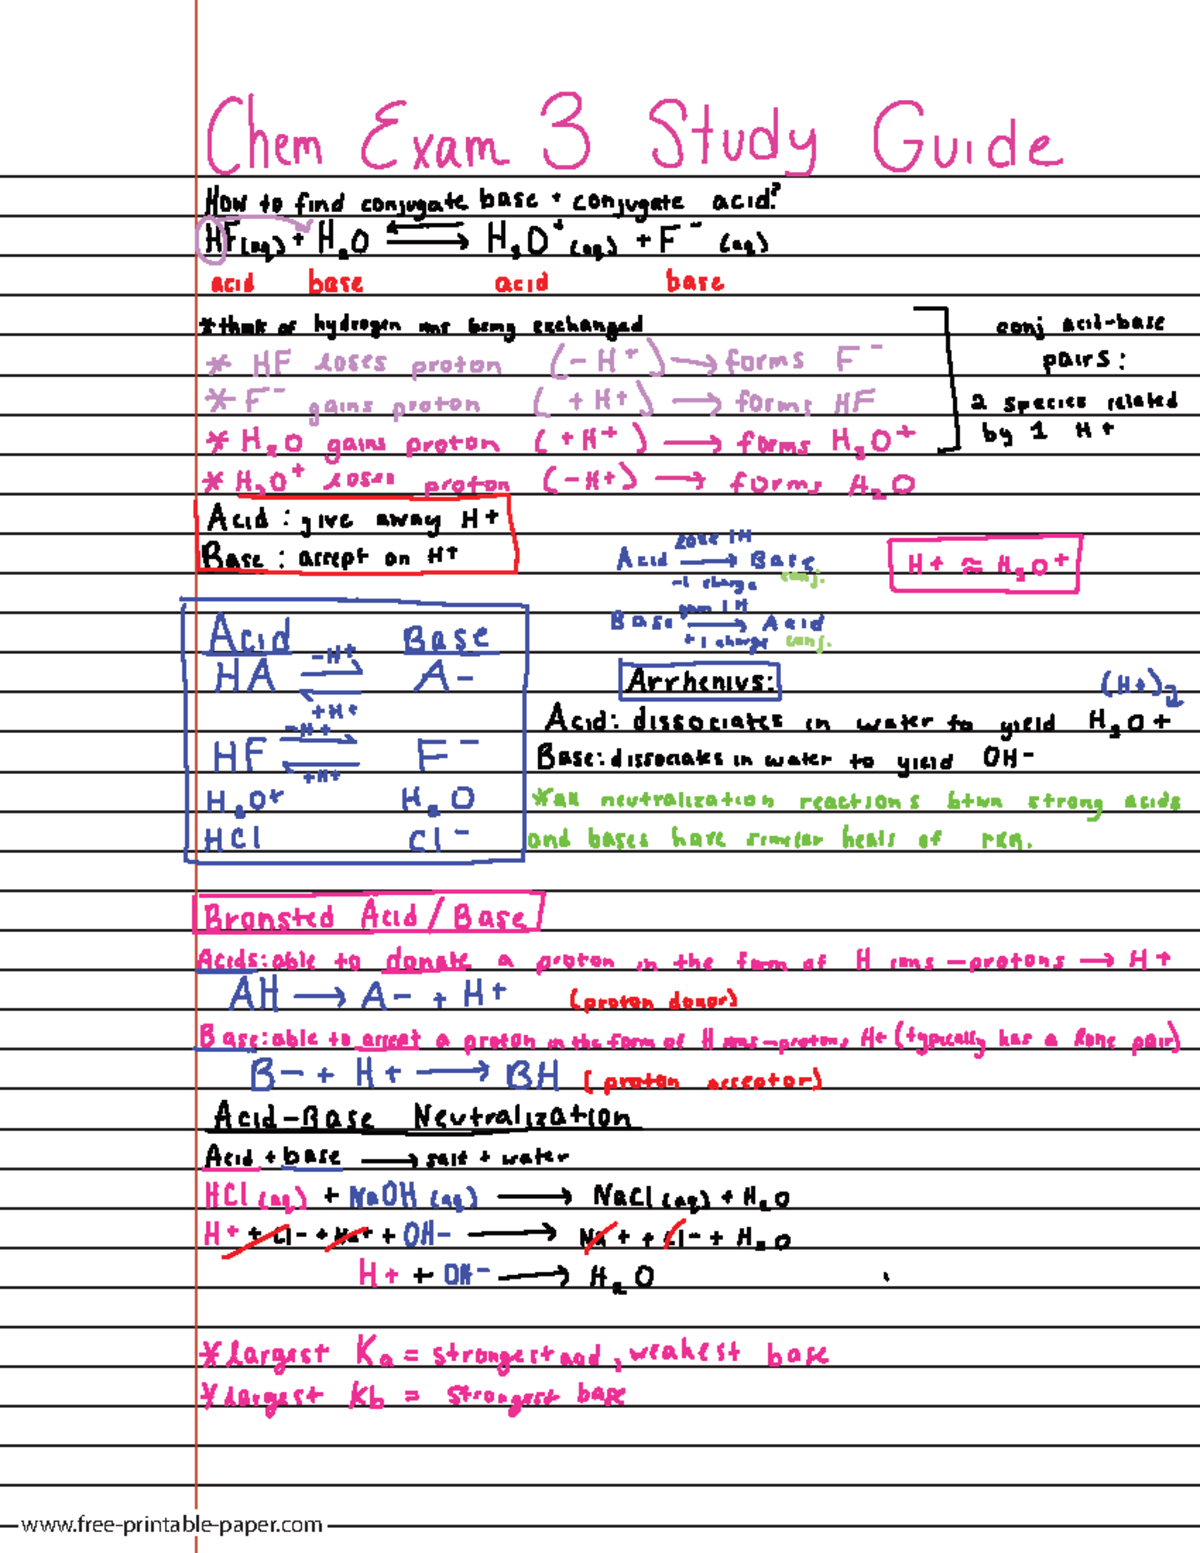 Chem Exam 3 Study Guide
How to find conjugate base + conjugate acid?
HF(aq) + H₂O ⇌ H₃O⁺(aq) + F⁻ (aq)
acid base acid base
*think of hydrogen ions being exchanged
* HF loses proton (-H⁺) → forms F⁻
* F⁻ gains proton (+H+) → forms HF
* H₂O gains proton (+H⁺) → forms H₃O+
* H₃O⁺ loses proton (-H+) → forms H₂O
conj acid-base
pairs:
2 species related
by 1 H+
Acid: give away H+
Base: accept on H+
Acid lose 1H → Base
-1 charge conj.
Base gain 1H → Acid
+1 charge conj.
H+ ≈ H₃O+
Acid Base
HA -H+ ⇌ +H+ A-
HF -H+ ⇌ +H+ F⁻
H₃O+ H₂O
HCl Cl⁻
Arrhenius:
(H+)
Acid: dissociates in water to yield H₃O+
Base: dissociates in water to yield OH-
*all neutralization reactions btwn strong acids
and bases have similar heats of rxn.
Bronsted Acid/Base
Acids: able to donate a proton in the form of H ions -protons → H+
AH → A- + H+ (proton donor)
Base: able to accept a proton in the form of H ions-protons H+ (typically has a lone pair)
B- + H+ → BH (proton acceptor)
Acid-Base Neutralization
Acid + base → salt + water
HCl(aq) + NaOH(aq) → NaCl(aq) + H₂O
H+ + Cl- + Na+ + OH- → Na+ + Cl- + H₂O
H+ + OH⁻ → H₂O
*largest Ka = strongest acid, weakest base
*largest Kb = strongest base
www.free-printable-paper.com